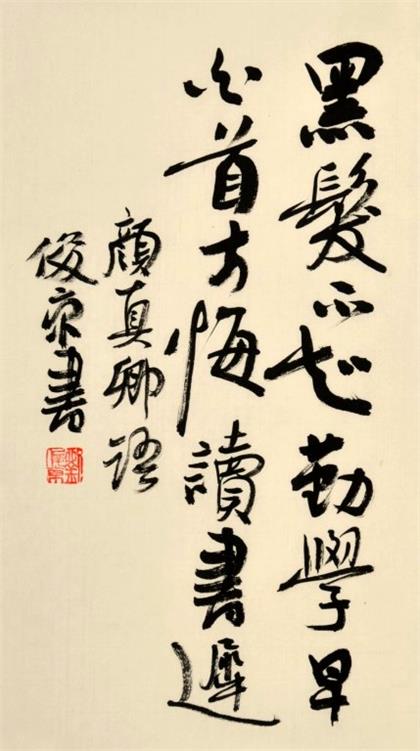 黑髮不知勤學早
白首方悔讀書遲
顔真卿語
俊京書